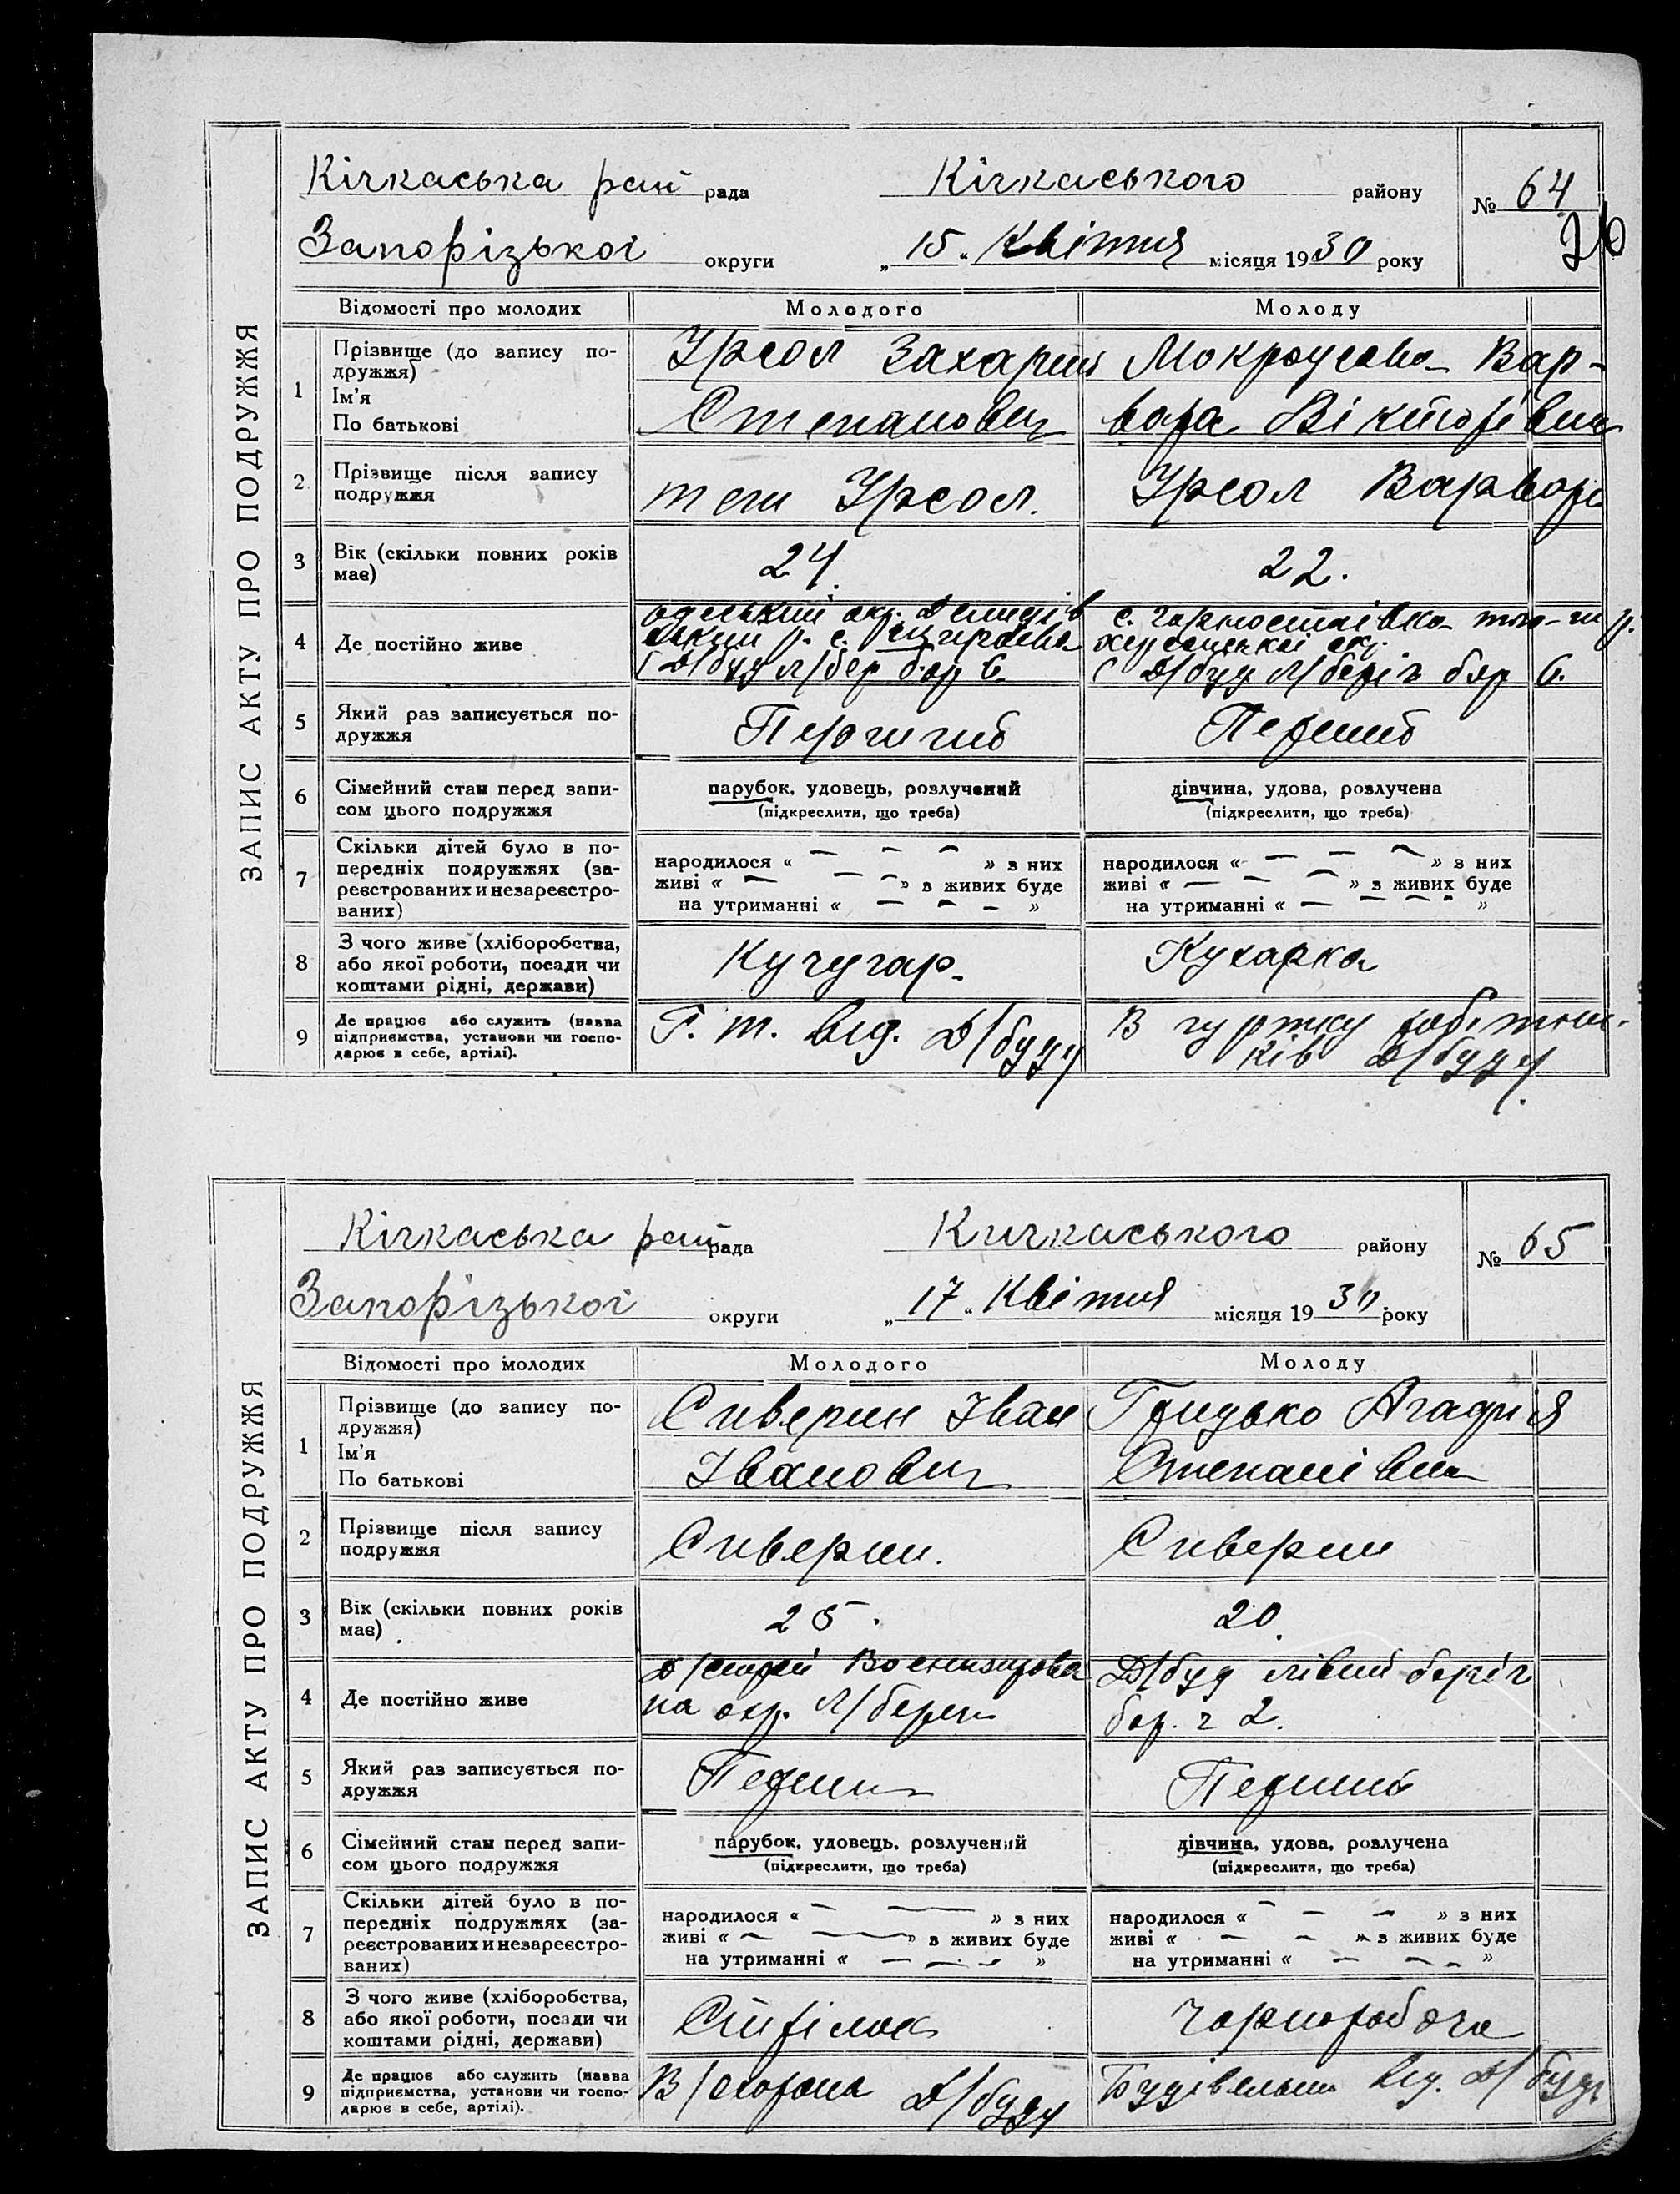 ЗАПИС АКТУ ПРО ПОДРУЖЖЯ
Кічкаська рай рада Кічкаського району № 64
26
Запорізької округи „15“ Квітня місяця 1930 року
Відомості про молодих Молодого Молоду
1 Прізвище (до запису по-
дружжя)
Ім'я
По батькові
Урсол Захарий
Степанович
Мокроусова Вар-
вара Вікторівна
2 Прізвище після запису
подружжя
теж Урсол.
Урсол Варвара
3 Вік (скільки повних років
має)
24.
22.
4 Де постійно живе
одеський окр.
р. с.
Д/буд л/бер бар 6.
с. Горностаївка р.
херсонської окр.
Д/буд л/беріг бар 6.
5 Який раз записується по-
дружжя
Перший
Перший
6 Сімейний стан перед запи-
сом цього подружжя
парубок, удовець, розлучений
(підкреслити, що треба)
дівчина, удова, розлучена
(підкреслити, що треба)
7 Скільки дітей було в по-
передніх подружжях (за-
реєстрованих и незареєстро-
ваних)
народилося « — — — » з них
живі « — — — » з живих буде
на утриманні « — — — »
народилося « — — — » з них
живі « — — — » з живих буде
на утриманні « — — — »
8 З чого живе (хліборобства,
або якої роботи, посади чи
коштами рідні, держави)
Кучугар.
Кухарка
9 Де працює або служить (назва
підприємства, установи чи госпо-
дарює в себе, артілі).
Г. т. від. Д/буду
В гуртку робітни-
ків Д/буду.
ЗАПИС АКТУ ПРО ПОДРУЖЖЯ
Кічкаська рай рада Кичкаського району № 65
Запорізької округи „17“ Квітня місяця 1930 року
Відомості про молодих Молодого Молоду
1 Прізвище (до запису по-
дружжя)
Ім'я
По батькові
Сиверин Іван
Іванович
Грицько Агафия
Степанівна
2 Прізвище після запису
подружжя
Сиверин.
Сиверин
3 Вік (скільки повних років
має)
25.
20.
4 Де постійно живе
на окр. Л/берег
Д/буд лівий беріг
бар. ч 2.
5 Який раз записується по-
дружжя
Перший
Перший
6 Сімейний стан перед запи-
сом цього подружжя
парубок, удовець, розлучений
(підкреслити, що треба)
дівчина, удова, розлучена
(підкреслити, що треба)
7 Скільки дітей було в по-
передніх подружжях (за-
реєстрованих и незареєстро-
ваних)
народилося « — — » з них
живі « — — » з живих буде
на утриманні « — — — »
народилося « — — — » з них
живі « — — » з живих буде
на утриманні « — — — »
8 З чого живе (хліборобства,
або якої роботи, посади чи
коштами рідні, держави)
Стрілок
Чорноробоча
9 Де працює або служить (назва
підприємства, установи чи госпо-
дарює в себе, артілі).
В/охорона Д/буду
Будівельн. від. Д/буду